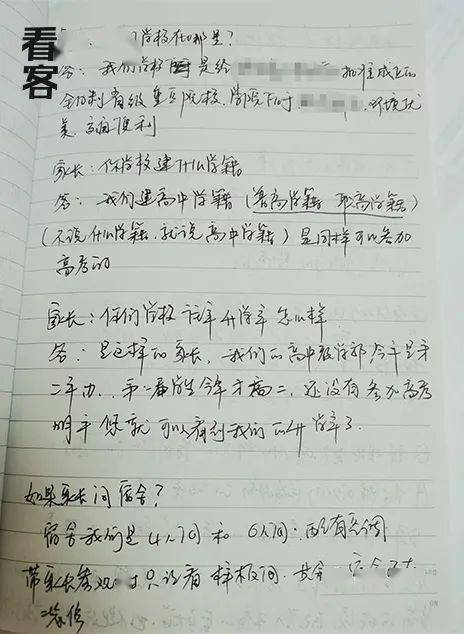 看客
学校在哪里？
答：我们学校 是经 批准成立的
全日制省级重点院校，学院位于 环境优
美，交通便利
家长：你学校建什么学籍
答：我们建高中学籍（普高学籍 职高学籍）
（不说什么学籍，就说高中学籍）是同样可以参加
高考的
家长：你们学校 升学率怎么样
答：是这样的家长，我们的高中教学部，今年是第
二年办，第一届学生今年才高二，还没有参加高考
明年您就可以看到我们的升学率了．
如果家长问宿舍？
宿舍我们是4人间和6人间；配有空调
带家长参观 只设有样板间，其余
装修